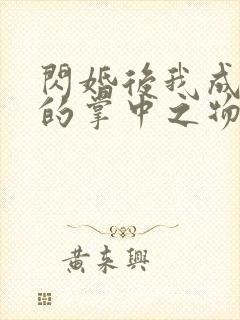 閃婚後我成
的掌中之物
黃來興